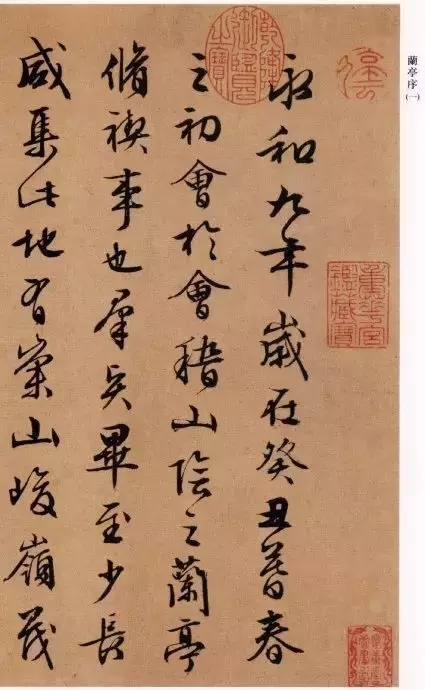 蘭亭序
(一)
永和九年歲在癸丑暮春
之初會於會稽山陰之蘭亭
脩禊事也群賢畢至少長
咸集此地有崇山峻嶺茂
重華宮
鑑藏寶